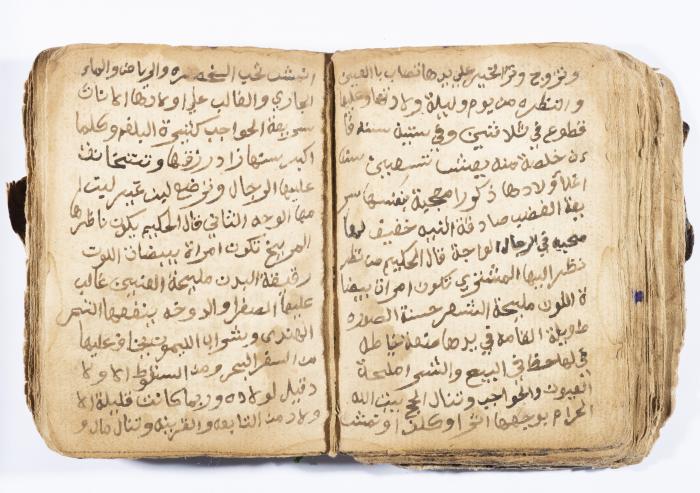 وتزوج وترا الخير على يدها تصاب بالعين
والنظره من يوم وليلة ولادتها وعليها
قطوع في ثلاثين وفي ستين سنة فا
ن خلصة منه يعشت تسعين سنا
اولادها ذكورا محبة نفسها سر
يعة الغضب صادقة النيه خفيف
محبه في الرجال الواجة قال الحكيم من نظر
نظر اليها المشتري تكون امراة بيضا
ة اللون مليحة الشعر حسنة الصوره
طويلة القامه في يدها صنعة خياطه
في لها حظ في البيع والشرا مليحة
العيون والحواجب وتنال الحج بيت الله
الحرام بوجهها اثرا وكلف او نمش
انمشت تحب الخضره والرياض والماء
الجاري والغالب على اولادها الاناث
سريعة الجواب كثيرة البلغم وكلما
اكبر سنها زاد رزقها
عليها الرجال
منها الوجه الثاني قال الحكيم يكون ناظرها
المريخ تكون امراة بيضات اللون
رقيقة البدن مليحة العينين غالب
عليها الصفرا والدوخه ينفعها التمر
الهندي وبشراب الليمون يخاف عليها
من السفر البحر ومن السقوط الاولا
د قبل لولاده وربما كانت قليلة الا
ولاد من التابعه والقرينه وتنال مال و